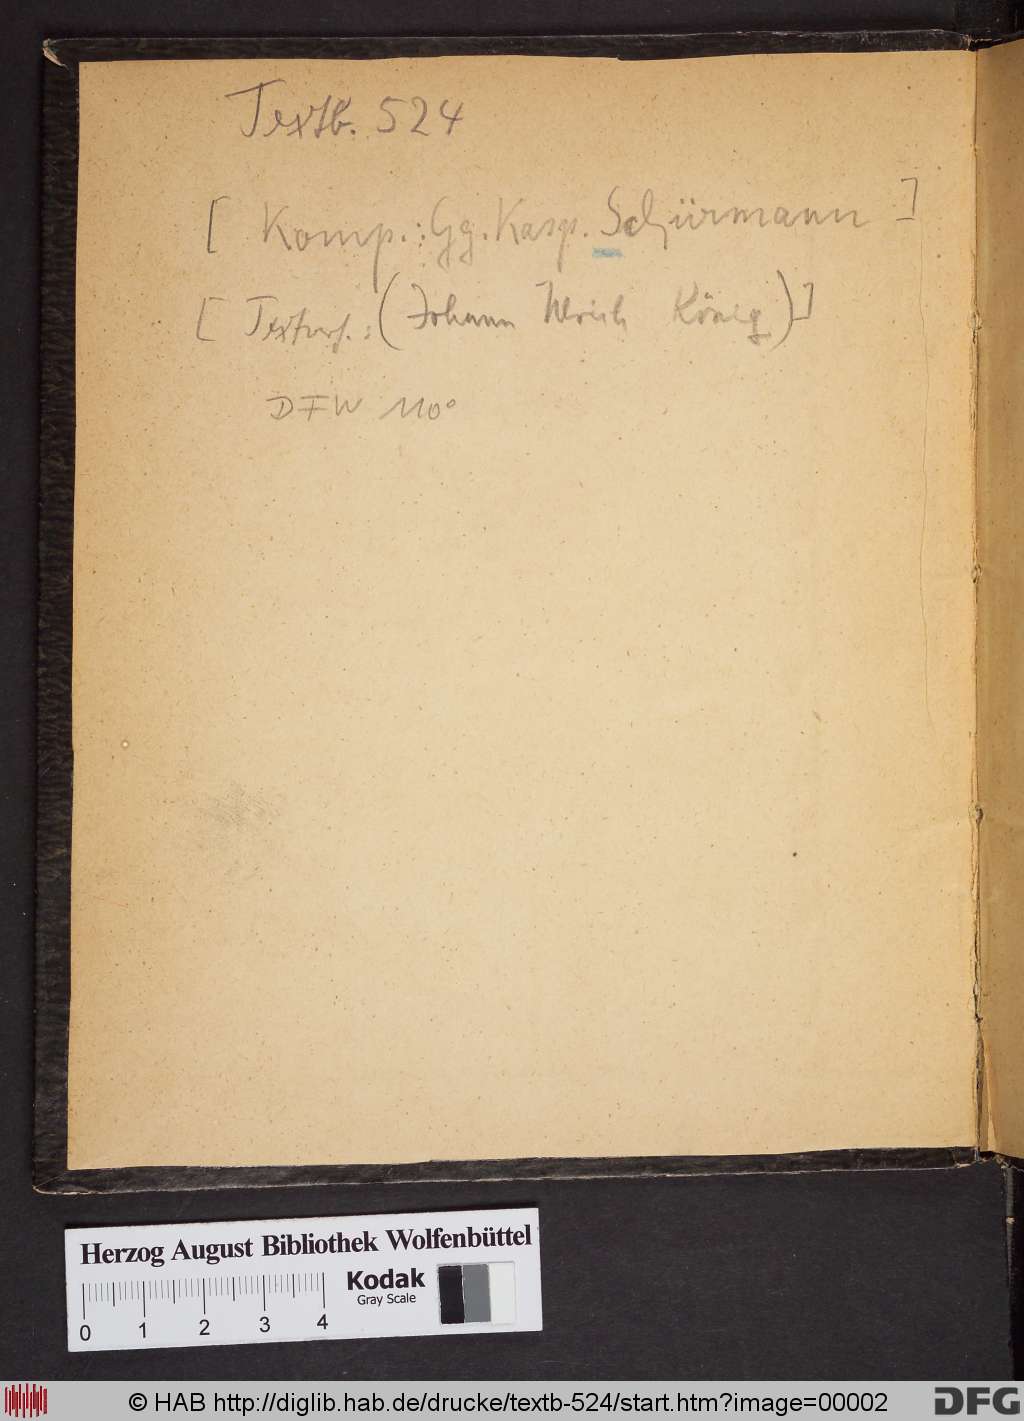 Textb. 524
[ Komp.: Gg. Kasp. Schürmann ]
[ Textverf.: (Johann Ulrich König) ]
DFW 110°
Herzog August Bibliothek Wolfenbüttel
Kodak
Gray Scale
0 1 2 3 4
© HAB http://diglib.hab.de/drucke/textb-524/start.htm?image=00002
DFG